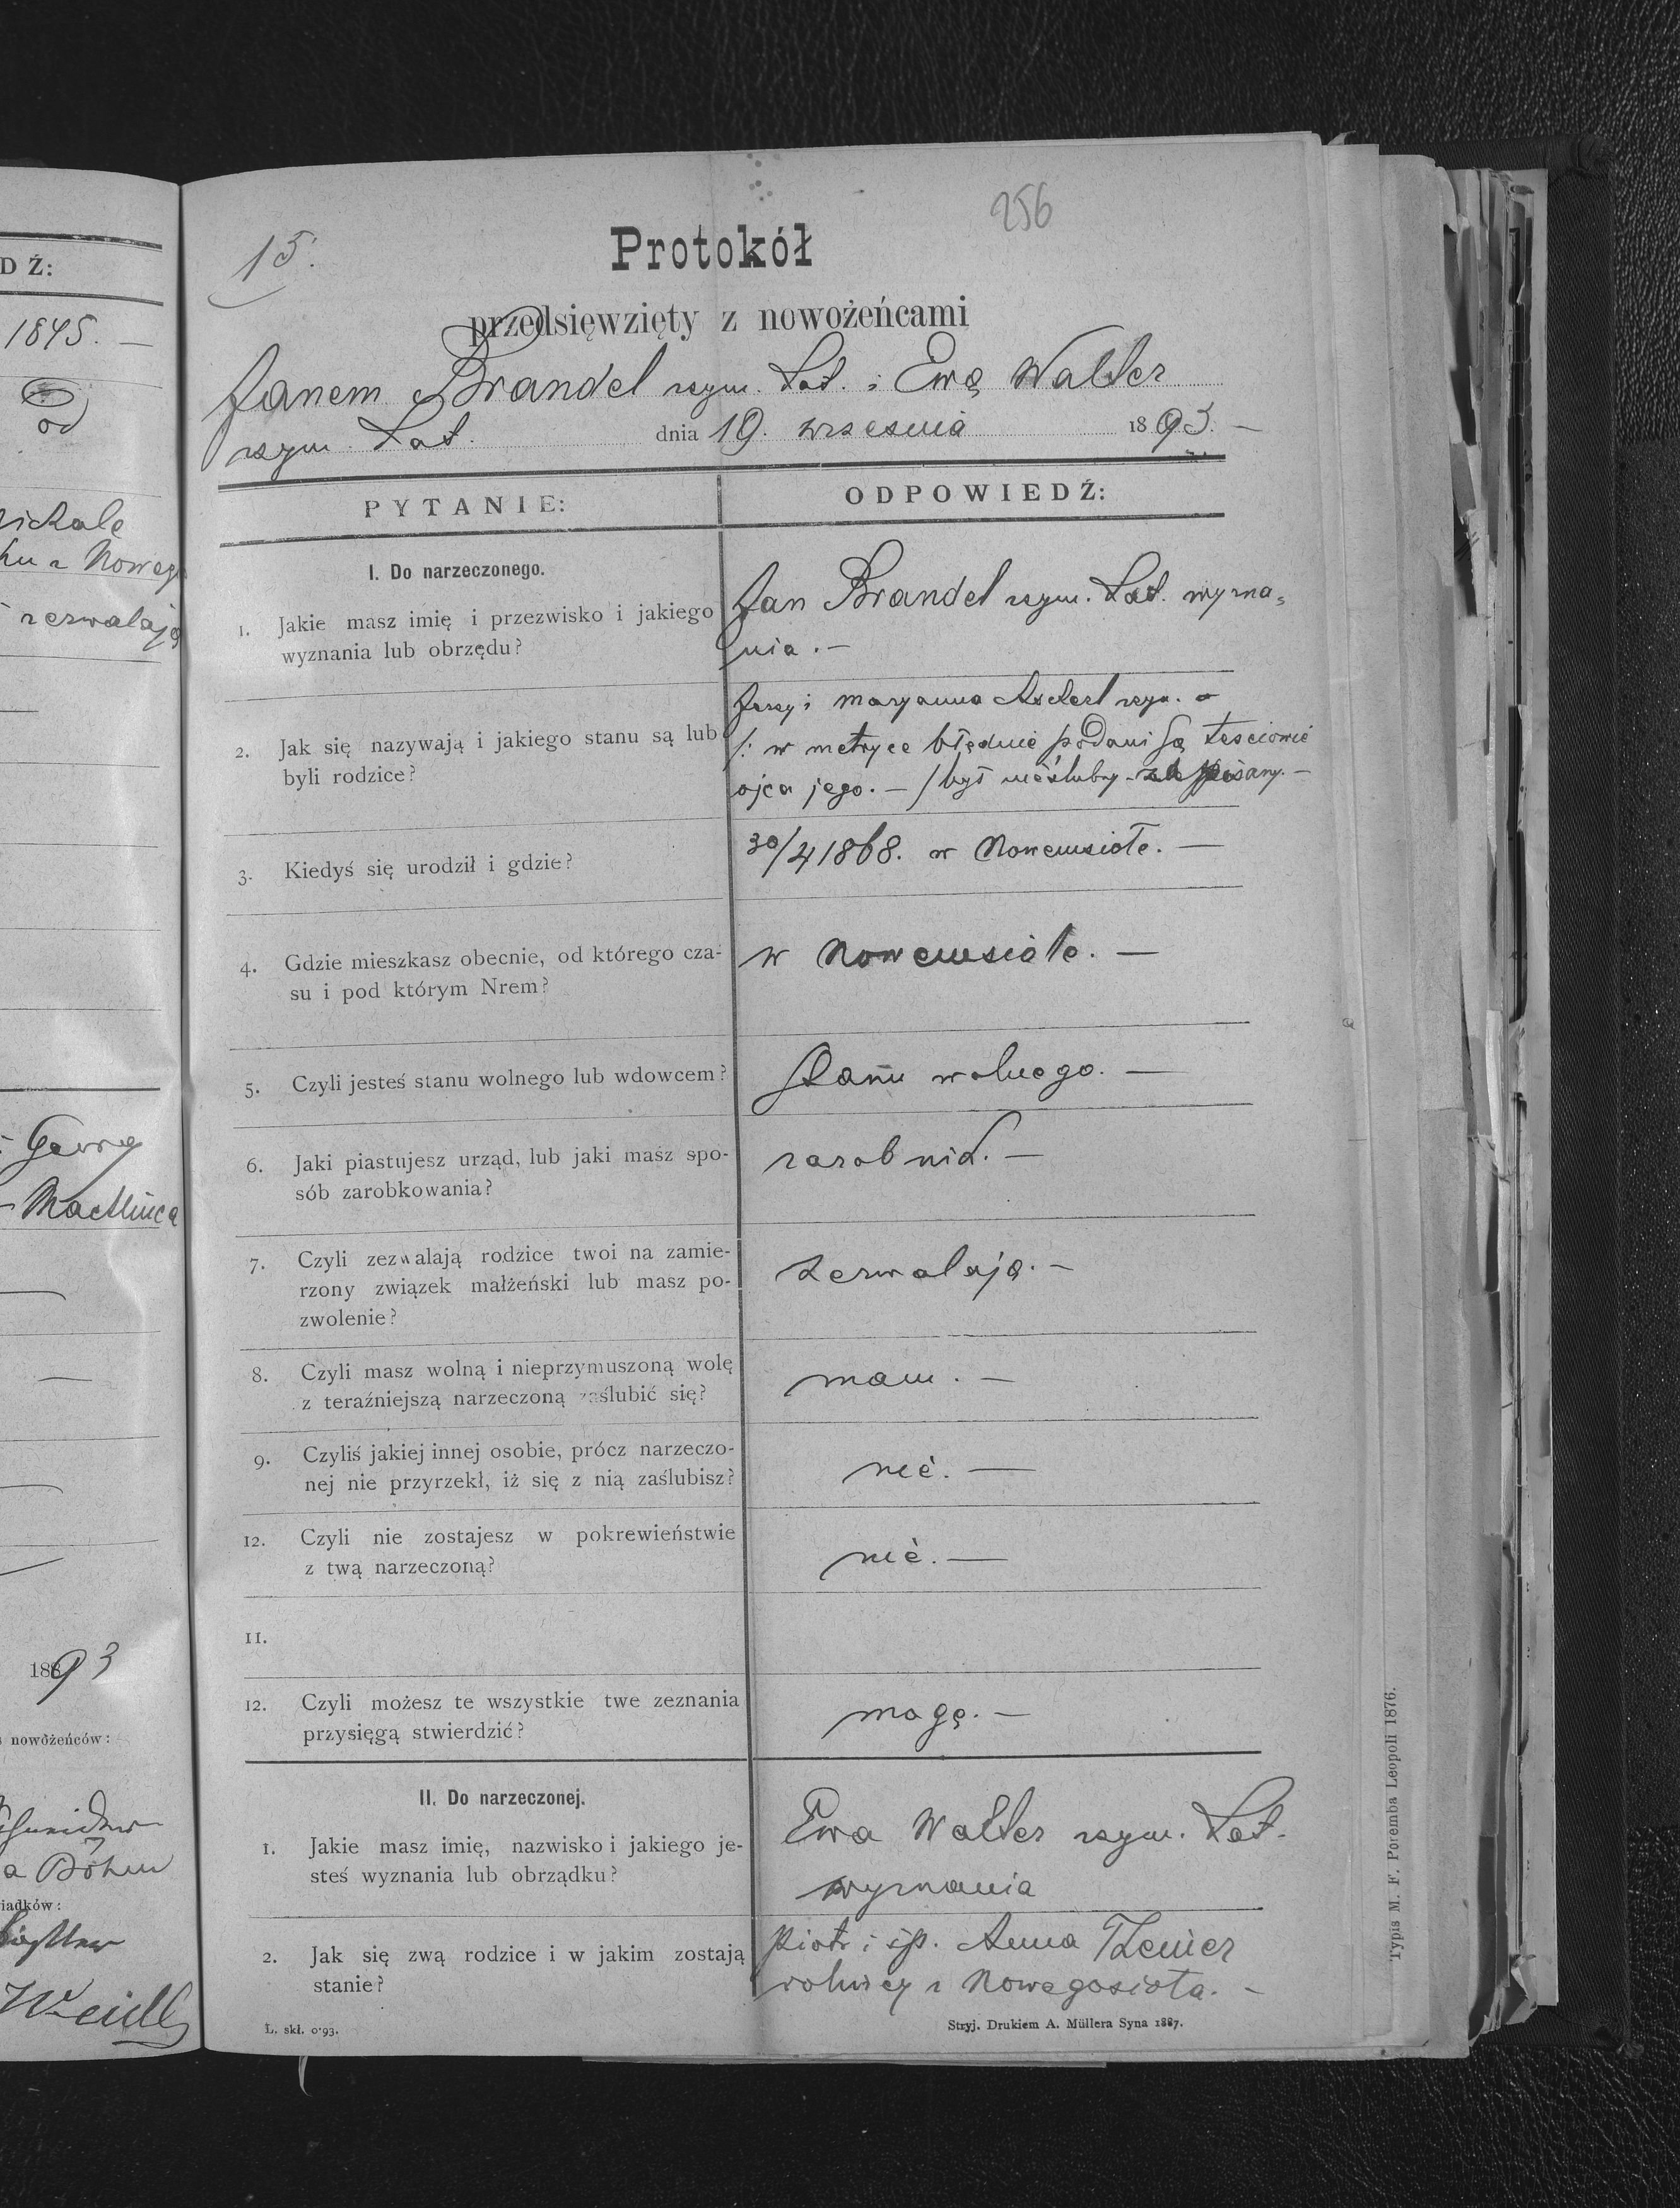 D Ź:
1845. —
od
hu z Nowego
zezwalają
Georg
1893
nowożeńców:
a Böhm
iadków:
Weidl
15.
256
Protokół
przedsięwzięty z nowożeńcami
Janem Brandel rzym. kat. i Ewą Walter
rzym. kat. dnia 19. września 1893. —
PYTANIE: ODPOWIEDŹ:
I. Do narzeczonego.
1. Jakie masz imię i przezwisko i jakiego
wyznania lub obrzędu?
Jan Brandel rzym. kat. wyzna=
nia. —
2. Jak się nazywają i jakiego stanu są lub
byli rodzice?
Jerzy i Maryanna rzym.
/: w metryce błędnie podani są teściowie
ojca jego. — / był nieślubny
3. Kiedyś się urodził i gdzie?
30/4 1868. w Nowemsiole. —
4. Gdzie mieszkasz obecnie, od którego cza-
su i pod którym Nrem?
w Nowemsiole. —
5. Czyli jesteś stanu wolnego lub wdowcem?
Stanu wolnego. —
6. Jaki piastujesz urząd, lub jaki masz spo-
sób zarobkowania?
zarobnik. —
7. Czyli zezwalają rodzice twoi na zamie-
rzony związek małżeński lub masz po-
zwolenie?
zezwalają. —
8. Czyli masz wolną i nieprzymuszoną wolę
z teraźniejszą narzeczoną zaślubić się?
mam. —
9. Czyliś jakiej innej osobie, prócz narzeczo-
nej nie przyrzekł, iż się z nią zaślubisz?
nie. —
12. Czyli nie zostajesz w pokrewieństwie
z twą narzeczoną?
nie. —
11.
12. Czyli możesz te wszystkie twe zeznania
przysięgą stwierdzić?
mogę. —
II. Do narzeczonej.
1. Jakie masz imię, nazwisko i jakiego je-
steś wyznania lub obrządku?
Ewa Walter rzym. kat.
wyznania
2. Jak się zwą rodzice i w jakim zostają
stanie?
Piotr i śp. Anna
rolnicy z Nowegosioła. —
L. skł. 0'93.
Stryj. Drukiem A. Müllera Syna 1887.
Typis M. F. Poremba Leopoli 1876.